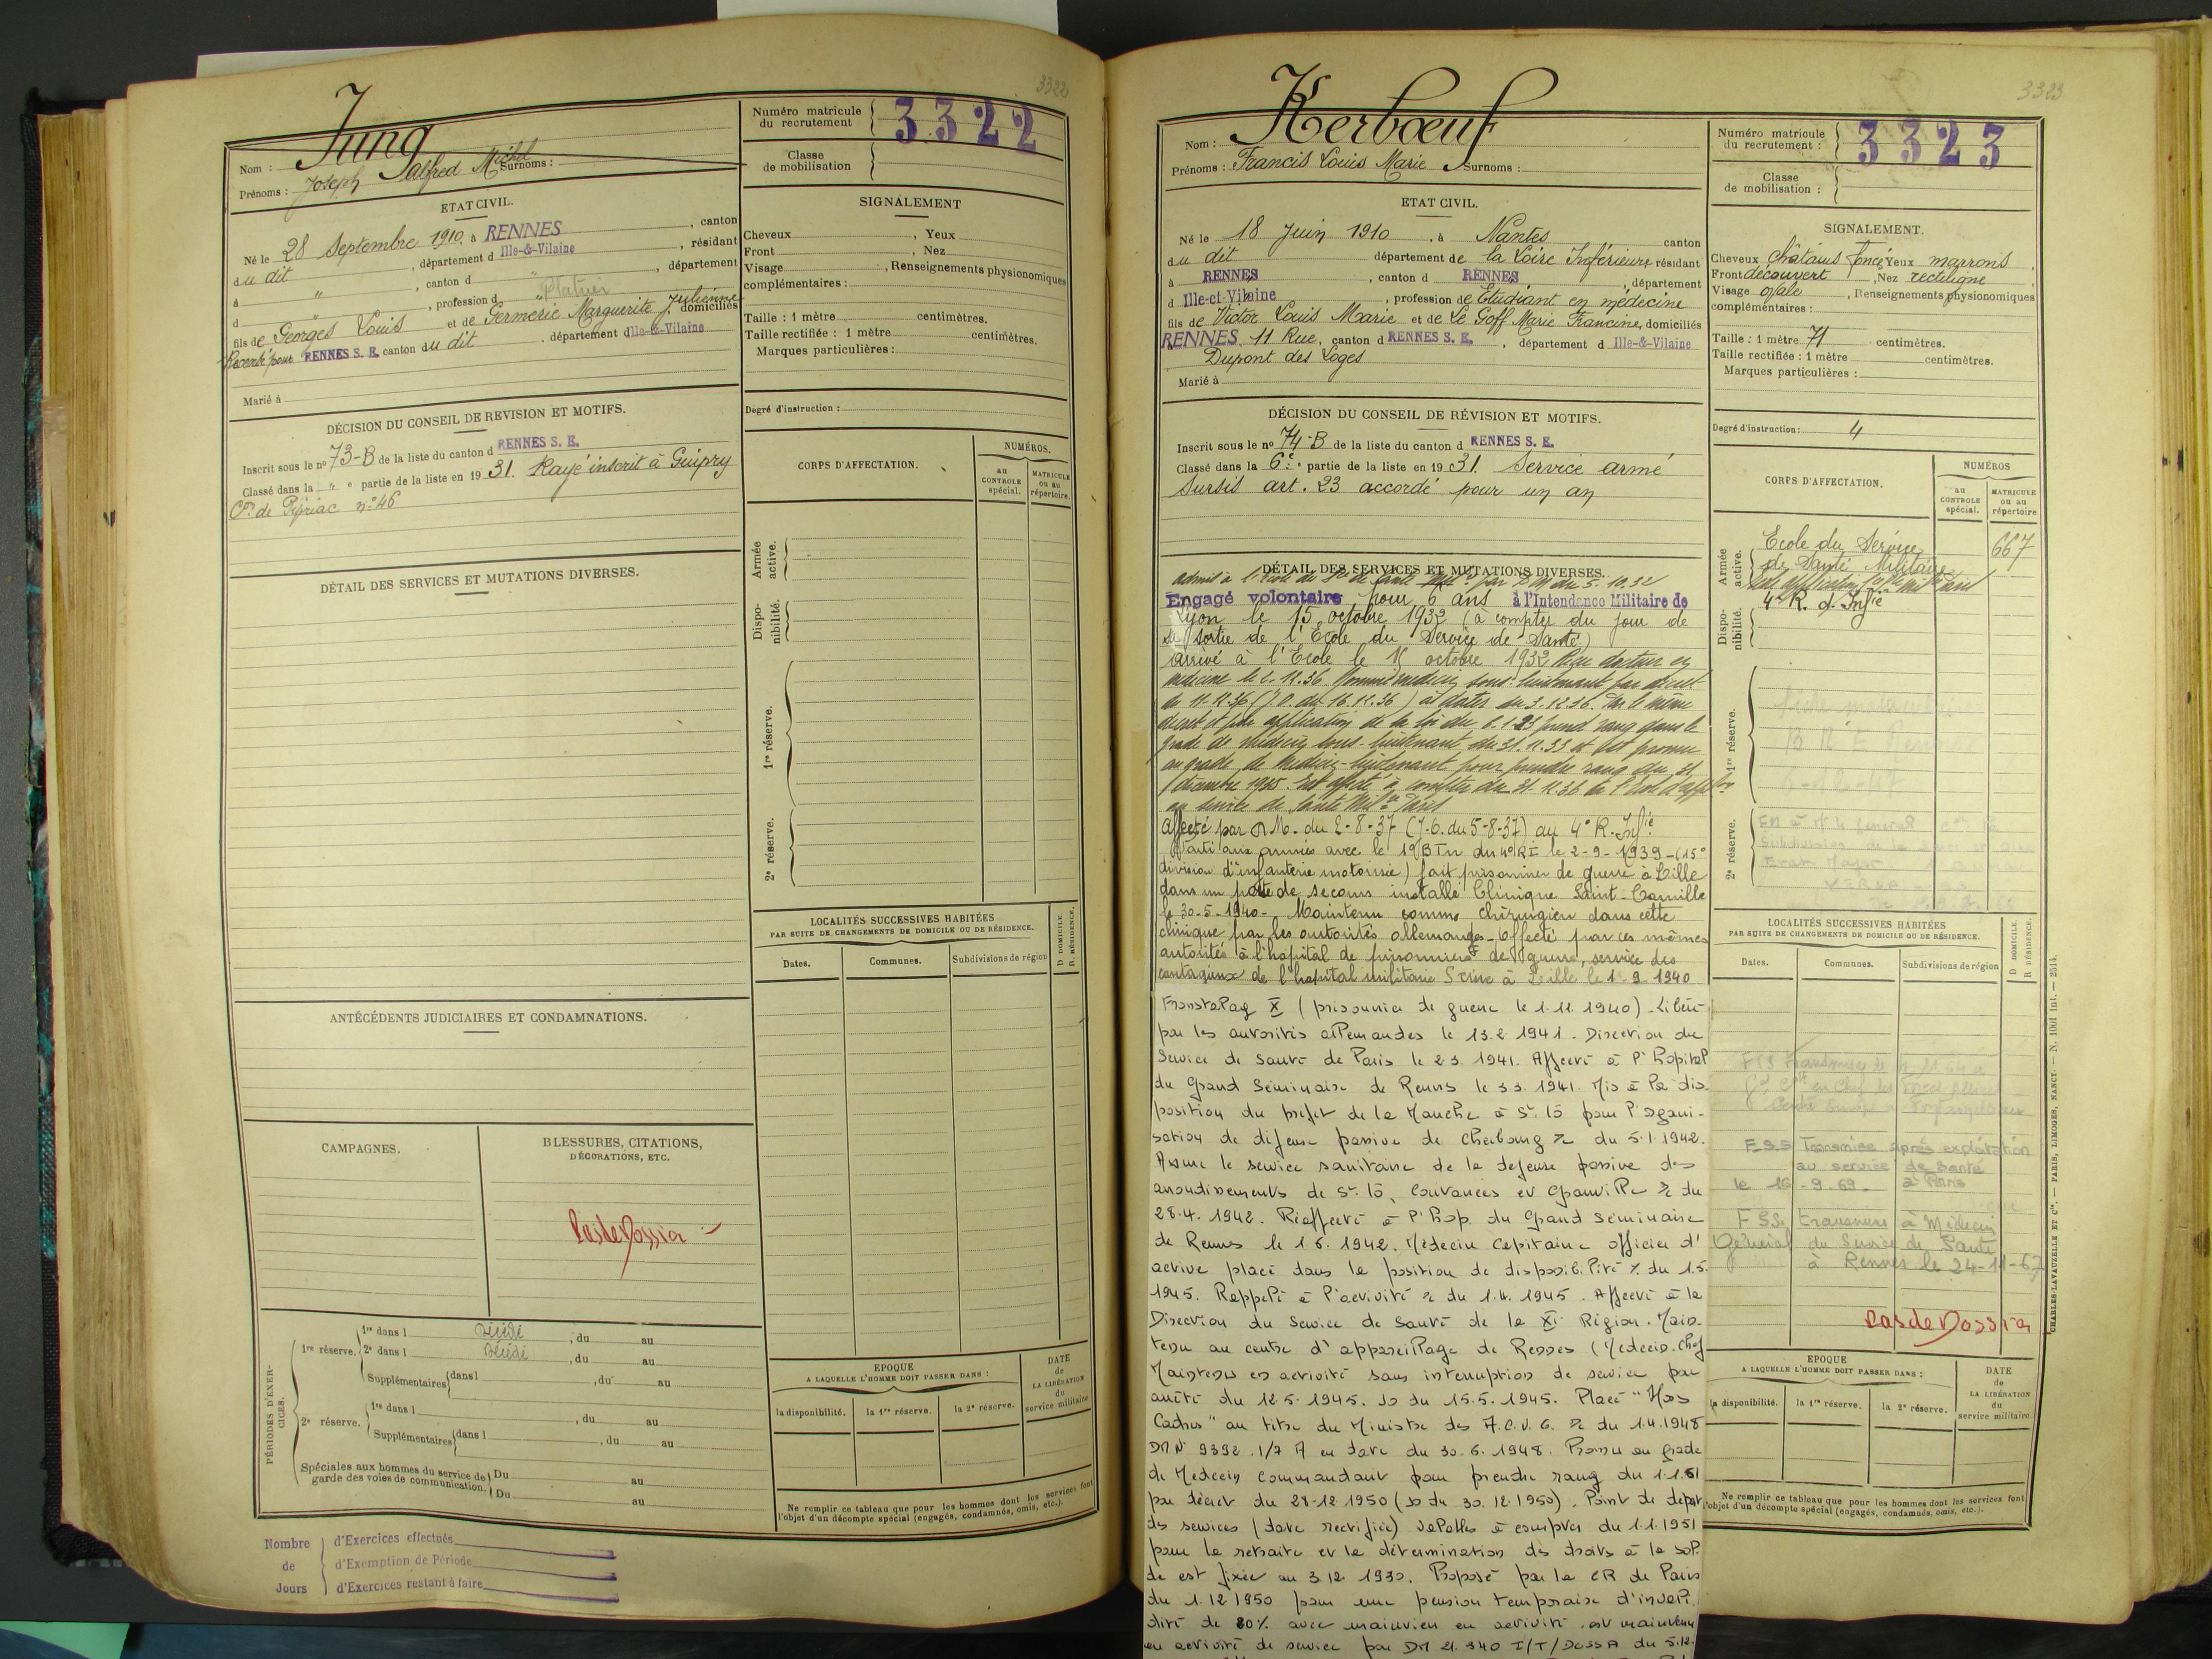 3322
Jung
Nom :
Prénoms : Joseph Alfred Michel Surnoms :
Numéro matricule du recrutement 3322
Classe de mobilisation
ETAT CIVIL.
Né le 28 Septembre 1910, à RENNES, canton
du dit, département d Ille-&-Vilaine, résidant
à ", canton d ", département
d ", profession d Platrier
fils de Georges Louis et de Germerie Marguerite Julienne domiciliés
Recensé pour RENNES S. E. canton du dit. département d Ille-&-Vilaine
Marié à
SIGNALEMENT
Cheveux, Yeux
Front, Nez
Visage, Renseignements physionomiques
complémentaires :
Taille : 1 mètre centimètres.
Taille rectifiée : 1 mètre centimètres.
Marques particulières :
Degré d'instruction :
DÉCISION DU CONSEIL DE REVISION ET MOTIFS.
Inscrit sous le n° 73-B de la liste du canton d RENNES S. E.
Classé dans la " e partie de la liste en 1931. Rayé inscrit à Guipry
Con de Pipriac n° 46
DÉTAIL DES SERVICES ET MUTATIONS DIVERSES.
ANTÉCÉDENTS JUDICIAIRES ET CONDAMNATIONS.
CAMPAGNES.
BLESSURES, CITATIONS,
DÉCORATIONS, ETC.
Pas de Dossier
PÉRIODES D'EXERCICES.
1re réserve. 1re dans l, du au
2e dans l, du au
Supplémentaires dans l, du au
2e réserve. 1re dans l, du au
Supplémentaires dans l, du au
Spéciales aux hommes du service de garde des voies de communication. Du au
Du au
Nombre de Jours
d'Exercices effectués
d'Exemption de Période
d'Exercices restant à faire
CORPS D'AFFECTATION.
NUMÉROS.
au CONTROLE spécial.
MATRICULE ou au répertoire.
Armée active.
Disponibilité.
1re réserve.
2e réserve.
LOCALITÉS SUCCESSIVES HABITÉES
PAR SUITE DE CHANGEMENTS DE DOMICILE OU DE RÉSIDENCE.
D DOMICILE.
R RÉSIDENCE.
Dates. Communes. Subdivisions de région
EPOQUE
A LAQUELLE L'HOMME DOIT PASSER DANS :
DATE de LA LIBÉRATION du service militaire
la disponibilité. la 1re réserve. la 2e réserve.
Ne remplir ce tableau que pour les hommes dont les services font
l'objet d'un décompte spécial (engagés, condamnés, omis, etc.).
3323
Kerbœuf
Nom :
Prénoms : Francis Louis Marie Surnoms :
Numéro matricule du recrutement : 3323
Classe de mobilisation :
ETAT CIVIL.
Né le 18 Juin 1910, à Nantes canton
du dit département de la Loire Inférieure résidant
à RENNES, canton d RENNES, département
d Ille-et-Vilaine, profession de Etudiant en médecine
fils de Victor Louis Marie et de Le Goff Marie Francine, domiciliés
RENNES, 11 Rue, canton d RENNES S. E., département d Ille-&-Vilaine
Dupont des Loges
Marié à
SIGNALEMENT.
Cheveux châtains foncé Yeux marrons
Front découvert, Nez rectiligne
Visage ovale, Renseignements physionomiques
complémentaires :
Taille : 1 mètre 71 centimètres.
Taille rectifiée : 1 mètre centimètres.
Marques particulières :
Degré d'instruction : 4
DÉCISION DU CONSEIL DE RÉVISION ET MOTIFS.
Inscrit sous le n° 74-B de la liste du canton d RENNES S. E.
Classé dans la 6e partie de la liste en 1931. Service armé
Sursis art. 23 accordé pour un an
DÉTAIL DES SERVICES ET MUTATIONS DIVERSES.
Admis à l'école du Sce de Santé Mil. par DM du 5.10.32
Engagé volontaire pour 6 ans à l'Intendance Militaire de
Lyon le 15 octobre 1932 (à compter du jour de
sa sortie de l'Ecole du Service de Santé)
arrivé à l'Ecole le 15 octobre 1932 Reçu docteur en
médecine le 2.12.36. Nommé médecin sous-lieutenant par décret
du 11.12.36 (J.O. du 16.12.36) à dater du 3.12.36. Par le même
décret et par application de la loi du 6.1.23 prend rang dans le
grade de médecin sous-lieutenant du 31.12.33 et est promu
au grade de médecin-lieutenant pour prendre rang du 31
décembre 1935. Est affecté à compter du 31.12.36 à l'Ecole d'applon
du service de Santé Milre Paris
Affecté par DM. du 2-8-37 (J.O. du 5-8-37) au 4e R. Infie
Parti aux armées avec le 1er BTn du 4e RI le 2-9-1939 (15e
division d'infanterie motorisée) fait prisonnier de guerre à Lille
dans un poste de secours installé Clinique Saint-Camille
le 30-5-1940- Maintenu comme chirurgien dans cette
clinique par les autorités allemandes - Affecté par ces mêmes
autorités à l'hôpital de prisonniers de guerre, service des
contagieux de l'hôpital militaire Scrive à Lille le 1-9 1940
Fronstalag X (prisonnier de guerre le 1.11.1940) - Libéré
par les autorités allemandes le 13.2.1941. Direction du
Service de Santé de Paris le 2.3.1941. Affecté à l'hôpital
du Grand Séminaire de Rennes le 3.3.1941. Mis à la dis
position du préfet de la Manche à St Lô pour l'organi-
sation de défense passive de Cherbourg du 5.1.1942.
Assure le service sanitaire de la défense passive des
arrondissements de St Lô, Coutances et Granville du
28.4.1942. Réaffecté à l'Hop. du Grand Séminaire
de Rennes le 1.6.1942. Médecin Capitaine officier d'
active placé dans la position de disponibilité du 1.5.
1945. Rappelé à l'activité du 1.4.1945. Affecté à la
Direction du Service de Santé de la XI Région. Main-
tenu au centre d'appareillage de Rennes (Médecin-Chef
Maintenu en activité sans interruption de service par
arrêté du 12.5.1945. JO du 15.5.1945. Placé "Hors
Cadres" au titre du Ministre des A.C.V.G. du 1.4.1948
DM N° 9392.1/7 A en date du 30.6.1948. Promu au grade
de Médecin Commandant pour prendre rang du 1.1.51
par décret du 28-12-1950 (JO du 30.12.1950). Point de départ
des services (date rectifiée) valables à compter du 1.1.1951
pour la retraite et la détermination des droits à la sol-
de est fixée au 3.12.1930. Proposé par la CR de Paris
du 1.12.1950 pour une pension temporaire d'invali-
dité de 80% avec maintien en activité. est maintenu
en activité de service par DM 21.340 I/T/DOSSA du 5.12.
CORPS D'AFFECTATION.
NUMÉROS
au CONTROLE spécial.
MATRICULE ou au répertoire
Armée active.
Ecole du Service 667
de Santé Militaire
4e R. d'Infie
Disponibilité.
1re réserve.
2e réserve.
LOCALITÉS SUCCESSIVES HABITÉES
PAR SUITE DE CHANGEMENTS DE DOMICILE OU DE RÉSIDENCE.
D DOMICILE.
R RÉSIDENCE.
Dates. Communes. Subdivisions de région
FSS Transmise après exploitation
au service de Santé
le 16-9-69. à Paris
FSS transmise à Médecin
Général du Service de Santé
à Rennes le 24-11-67
Pas de Dossier
EPOQUE
A LAQUELLE L'HOMME DOIT PASSER DANS :
DATE de LA LIBÉRATION du service militaire
la disponibilité. la 1re réserve. la 2e réserve.
Ne remplir ce tableau que pour les hommes dont les services font
l'objet d'un décompte spécial (engagés, condamnés, omis, etc.).
CHARLES-LAVAUZELLE ET Cie. — PARIS, LIMOGES, NANCY — N. 1001 Int. — 2514.